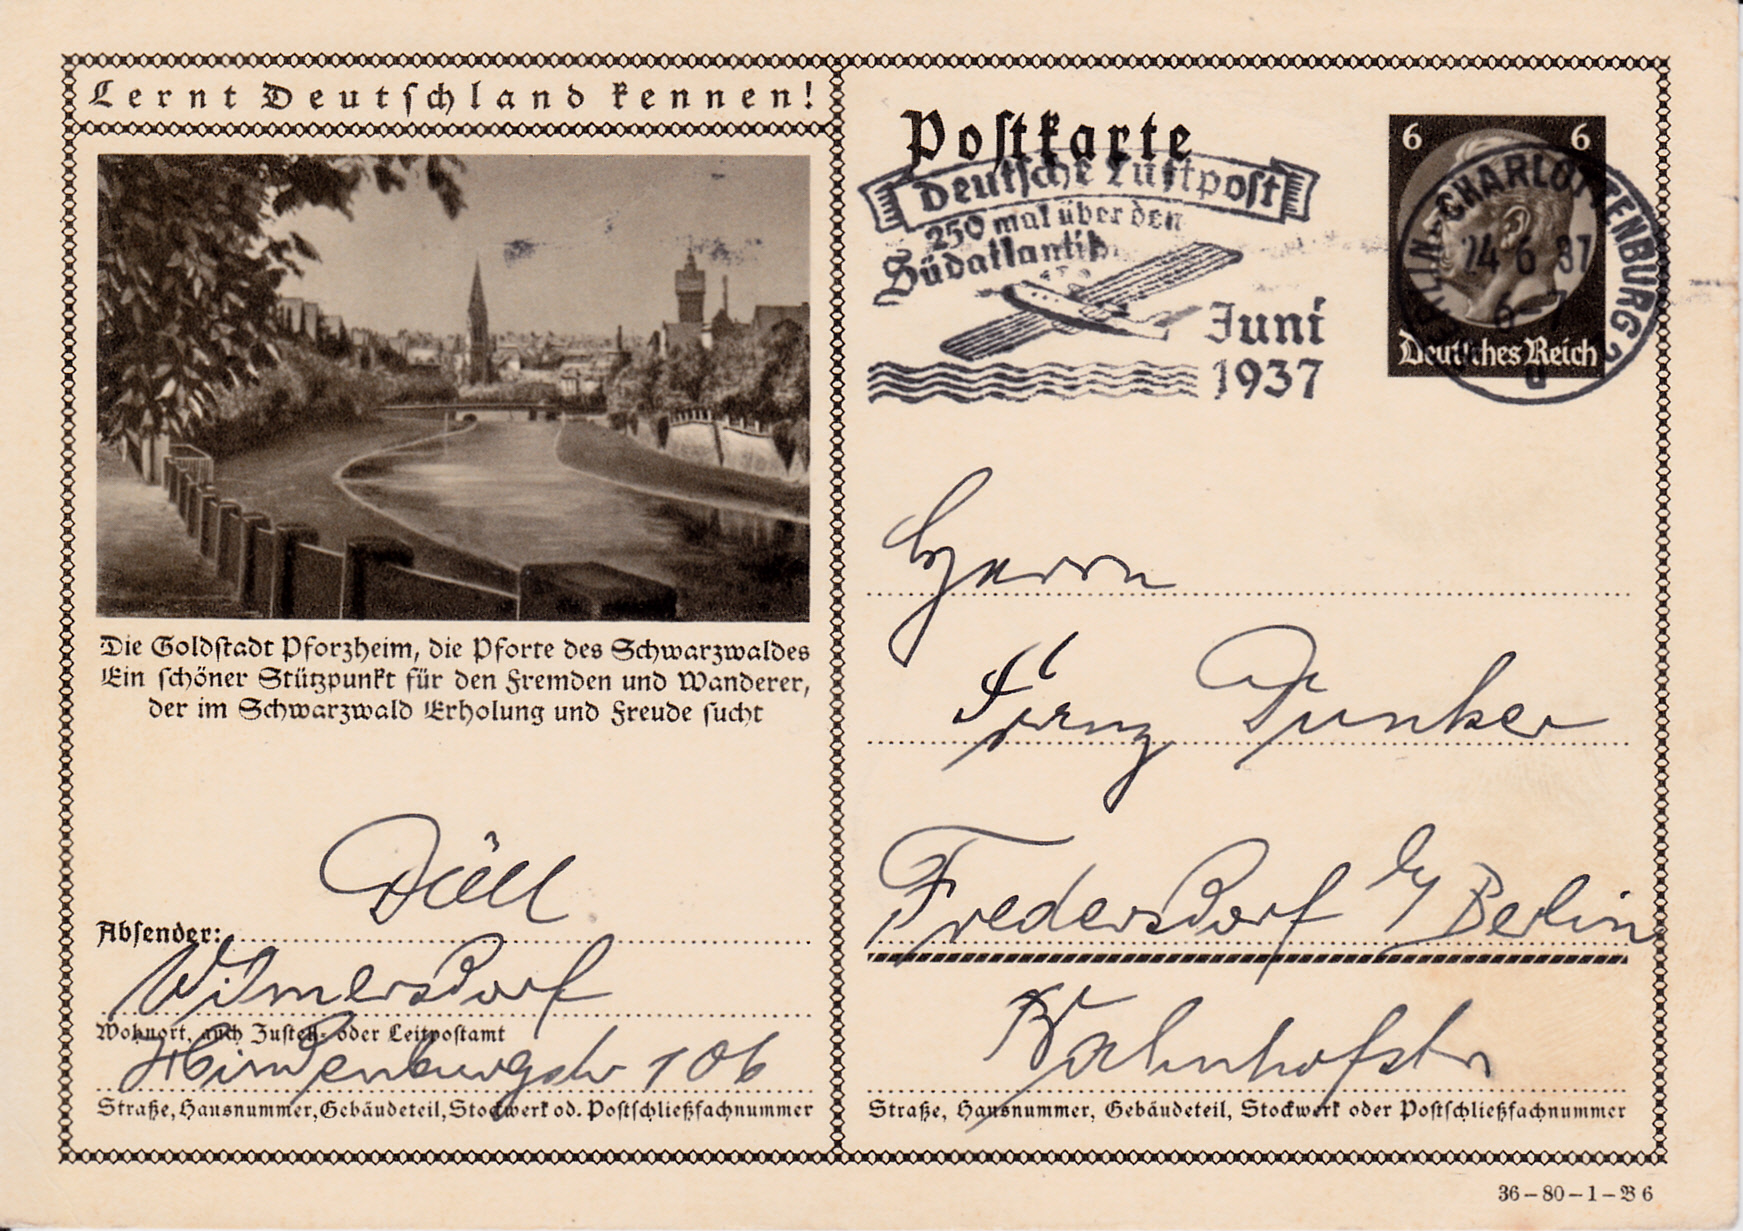 Lernt Deutschland kennen!
Die Goldstadt Pforzheim, die Pforte des Schwarzwaldes
Ein schöner Stützpunkt für den Fremden und Wanderer,
der im Schwarzwald Erholung und Freude sucht
Däll
Absender:
Wilmersdorf
Wohnort, auch Zustell- oder Leitpostamt
Hindenburgstr 106
Straße, Hausnummer, Gebäudeteil, Stockwerk od. Postschließfachnummer
Postkarte
Deutsche Luftpost
250 mal über den
Südatlantik
Juni
1937
6 6
Deutsches Reich
BERLIN-CHARLOTTENBURG 2
24 6 37
6-7
u
Herrn
Franz Dunker
Fredersdorf b/ Berlin
Bahnhofstr
Straße, Hausnummer, Gebäudeteil, Stockwerk oder Postschließfachnummer
36–80–1–B 6